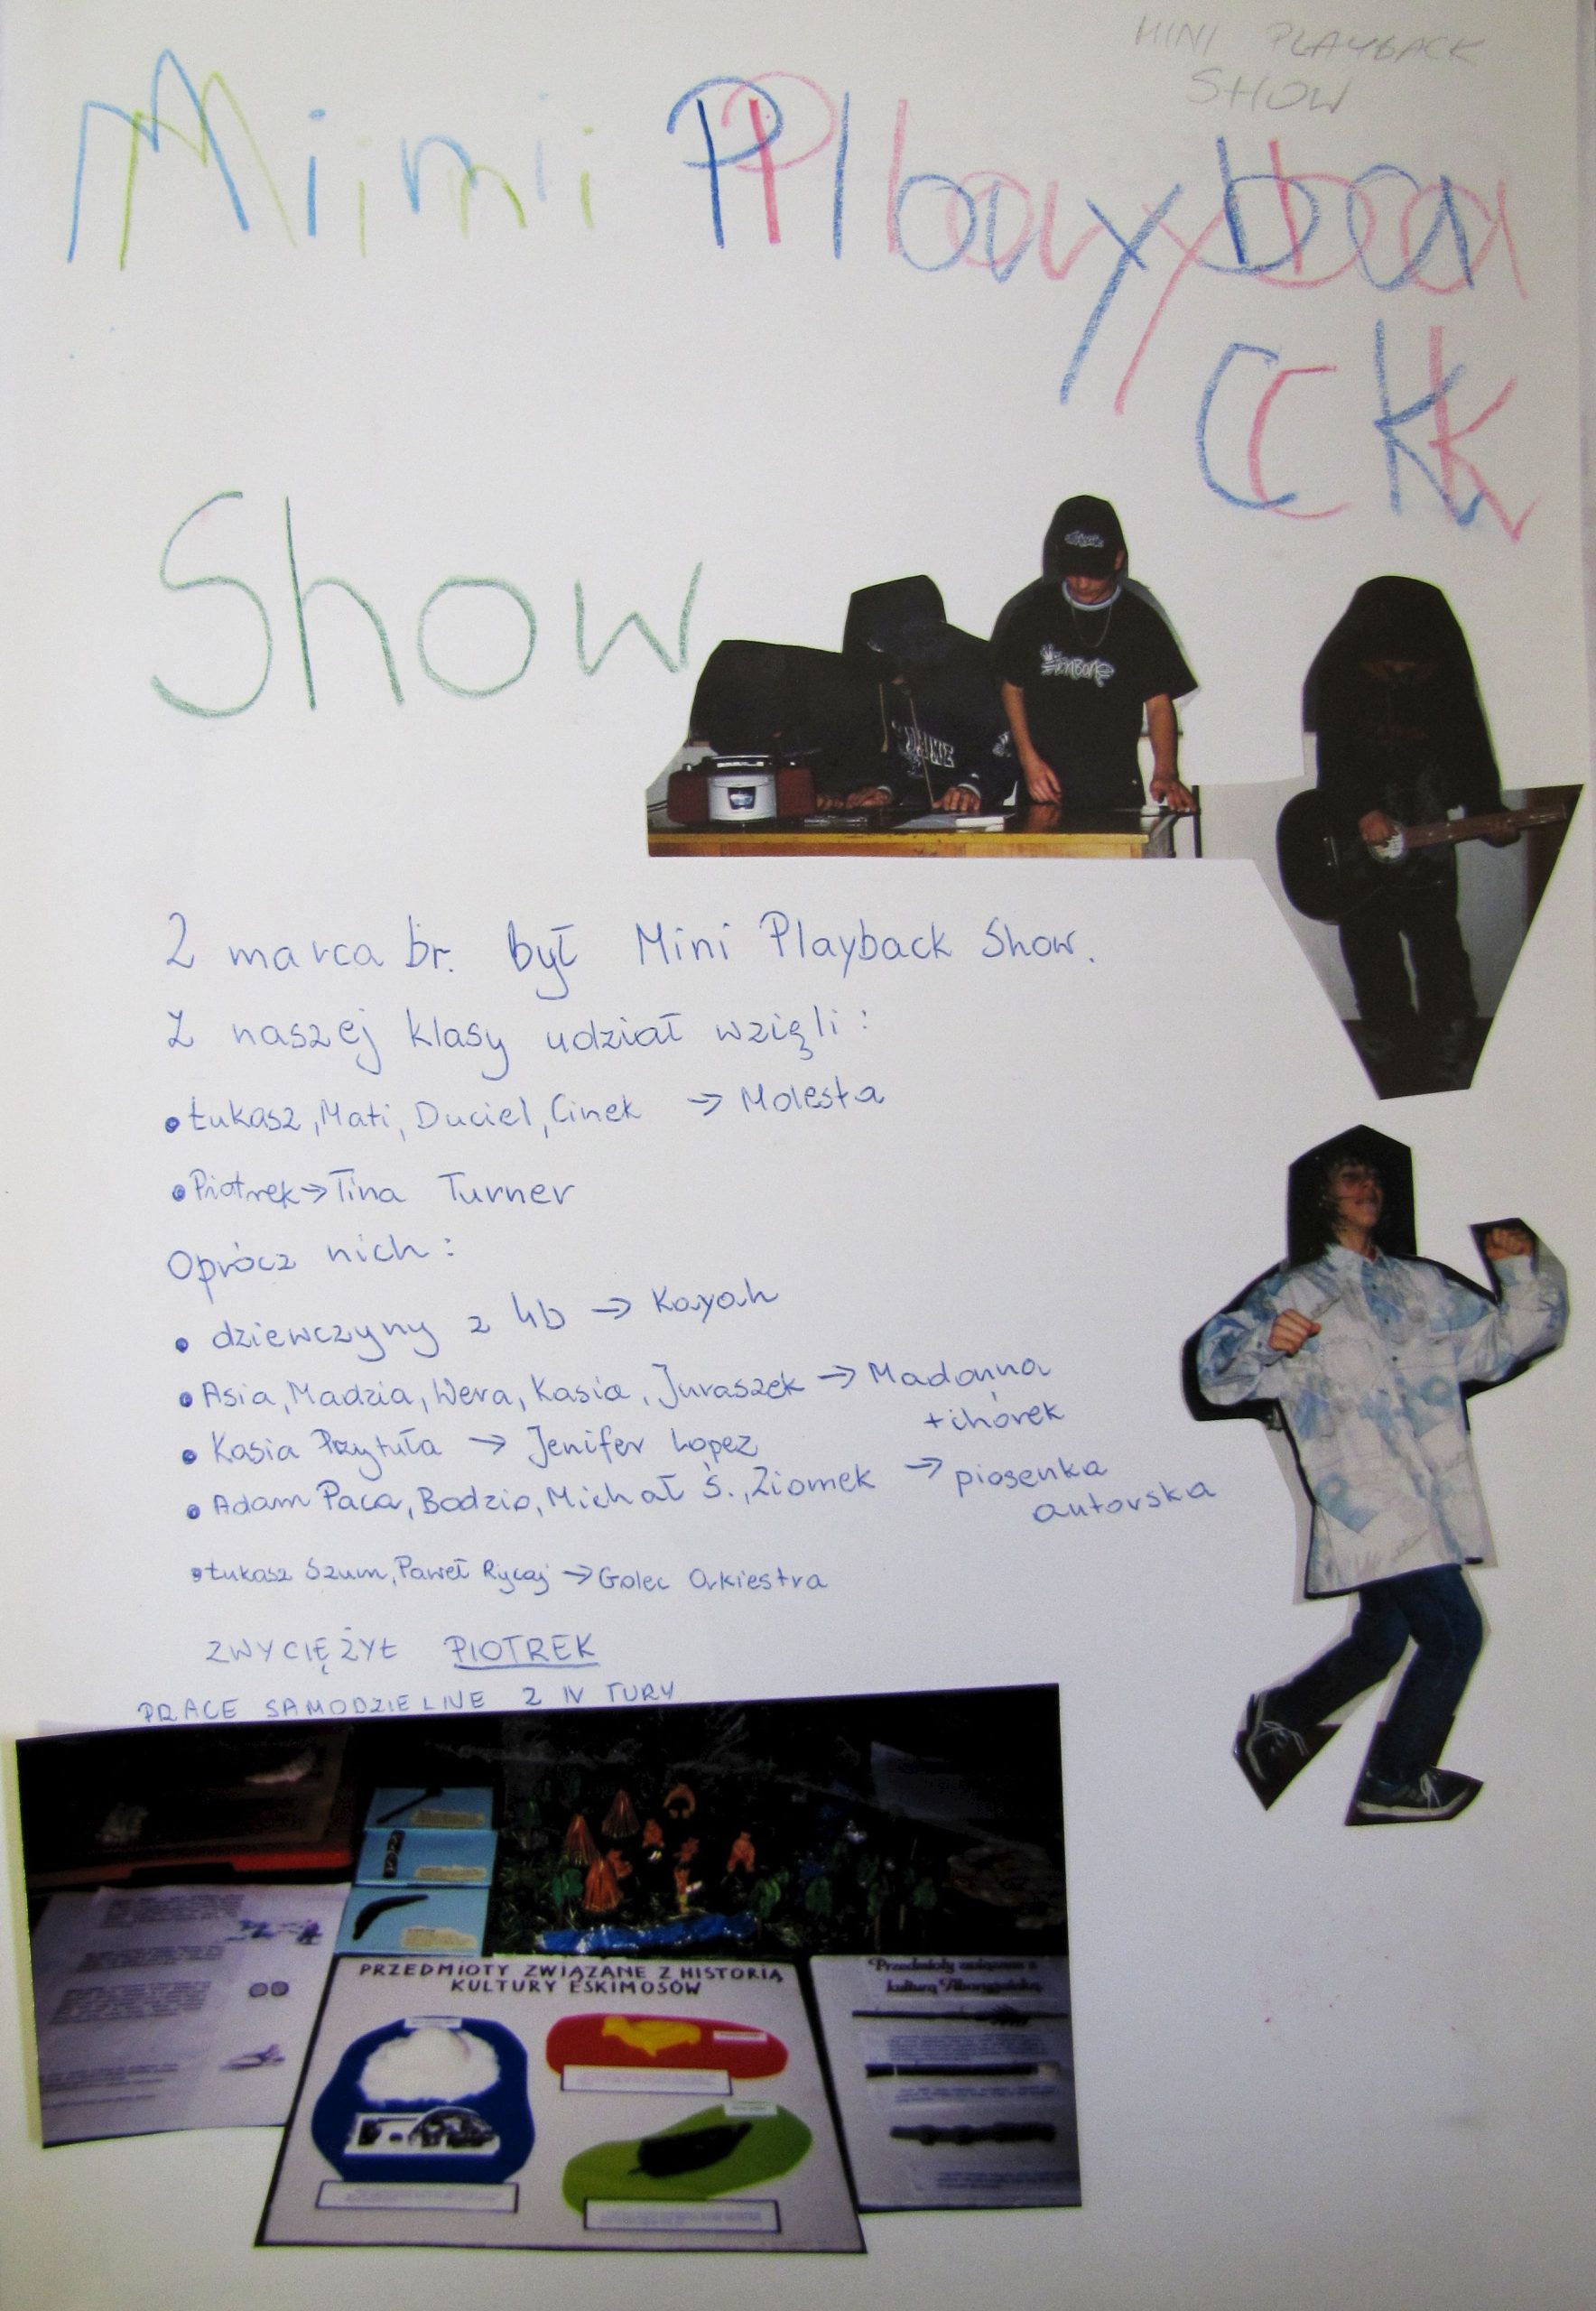 MINI PLAYBACK
SHOW
Mini Playba
ck
Show
2 marca br. był Mini Playback Show.
Z naszej klasy udział wzięli:
• Łukasz, Mati, Duciel, Cinek → Molesta
• Piotrek → Tina Turner
Oprócz nich:
• dziewczyny z 4b → Kayah
• Asia, Madzia, Wera, Kasia, Juraszek → Madonna
+ chórek
• Kasia Przytuła → Jenifer Lopez
• Adam Paca, Bodzio, Michał Ś., Ziomek → piosenka
autorska
• Łukasz Szum, Paweł Rycaj → Golec Orkiestra
ZWYCIĘŻYŁ PIOTREK
PRACE SAMODZIELNE Z IV TURY
PRZEDMIOTY ZWIĄZANE Z HISTORIĄ
KULTURY ESKIMOSÓW
Przedmioty związane z
kulturą Aborygeńską